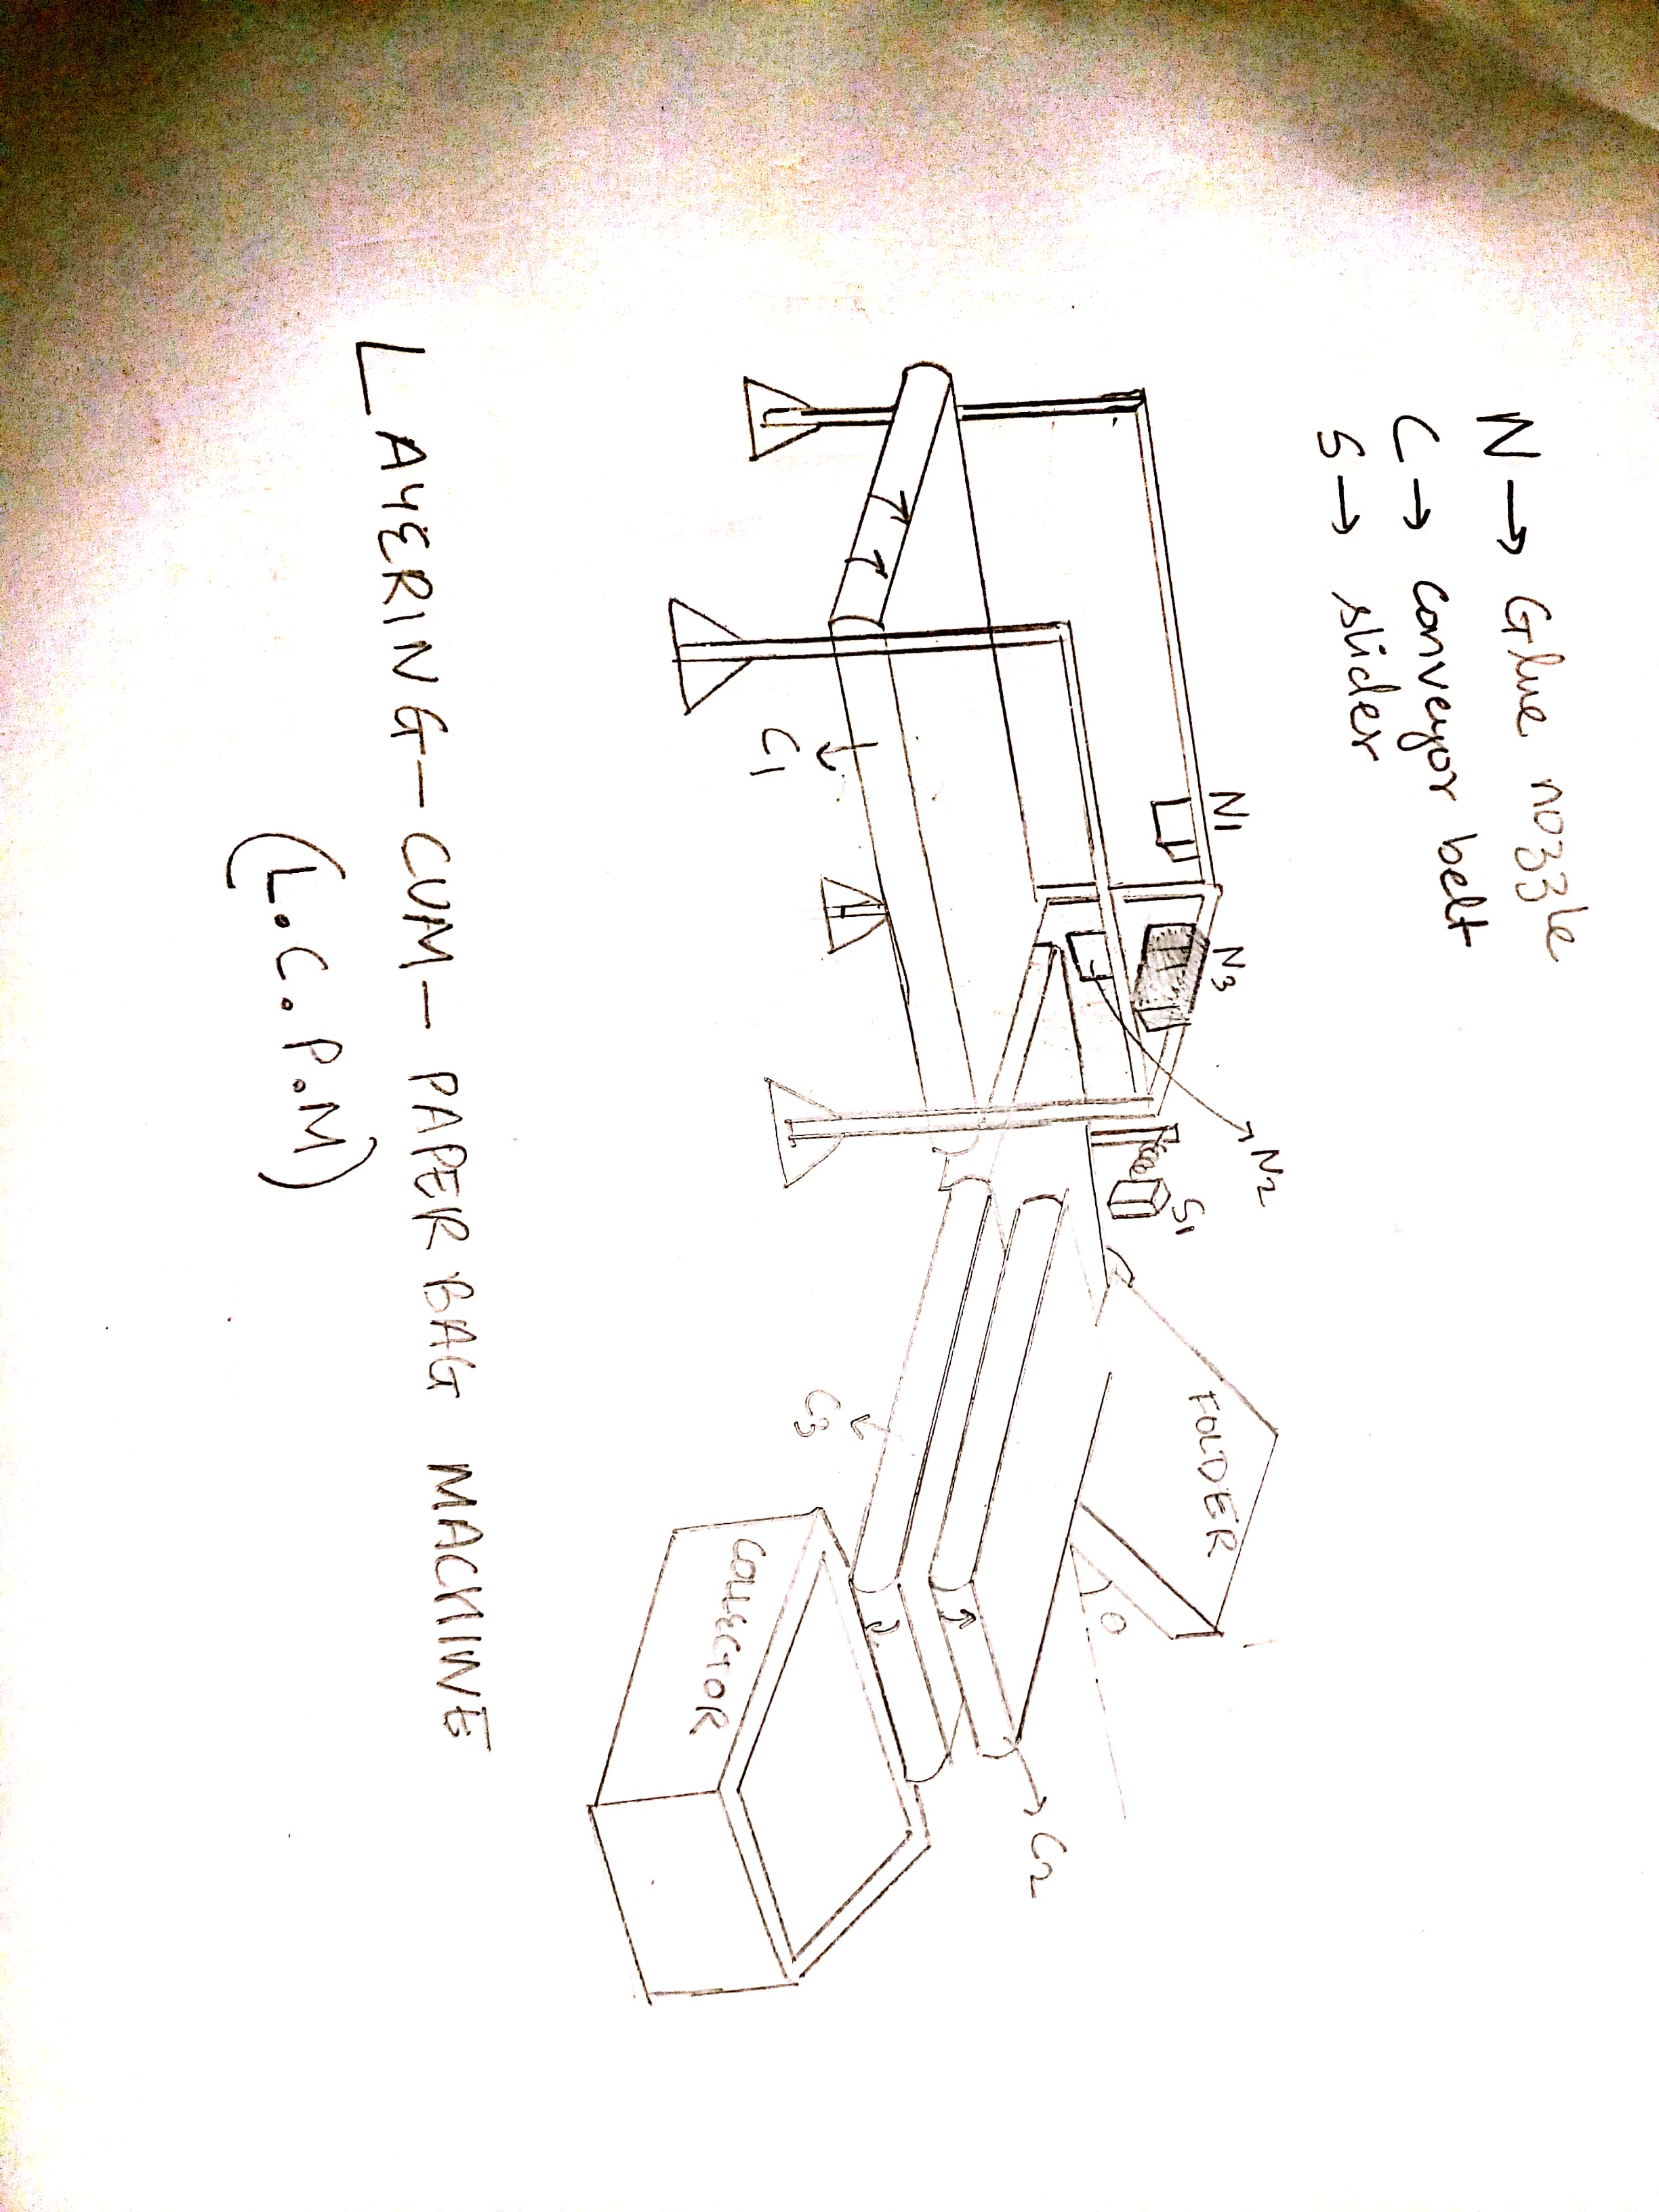 N → Glue nozzle
C → Conveyor belt
S → slider
N1
N3
N2
S1
FOLDER
θ
C2
C1
C3
COLLECTOR
LAYERING-CUM-PAPER BAG MACHINE
(L.C.P.M)